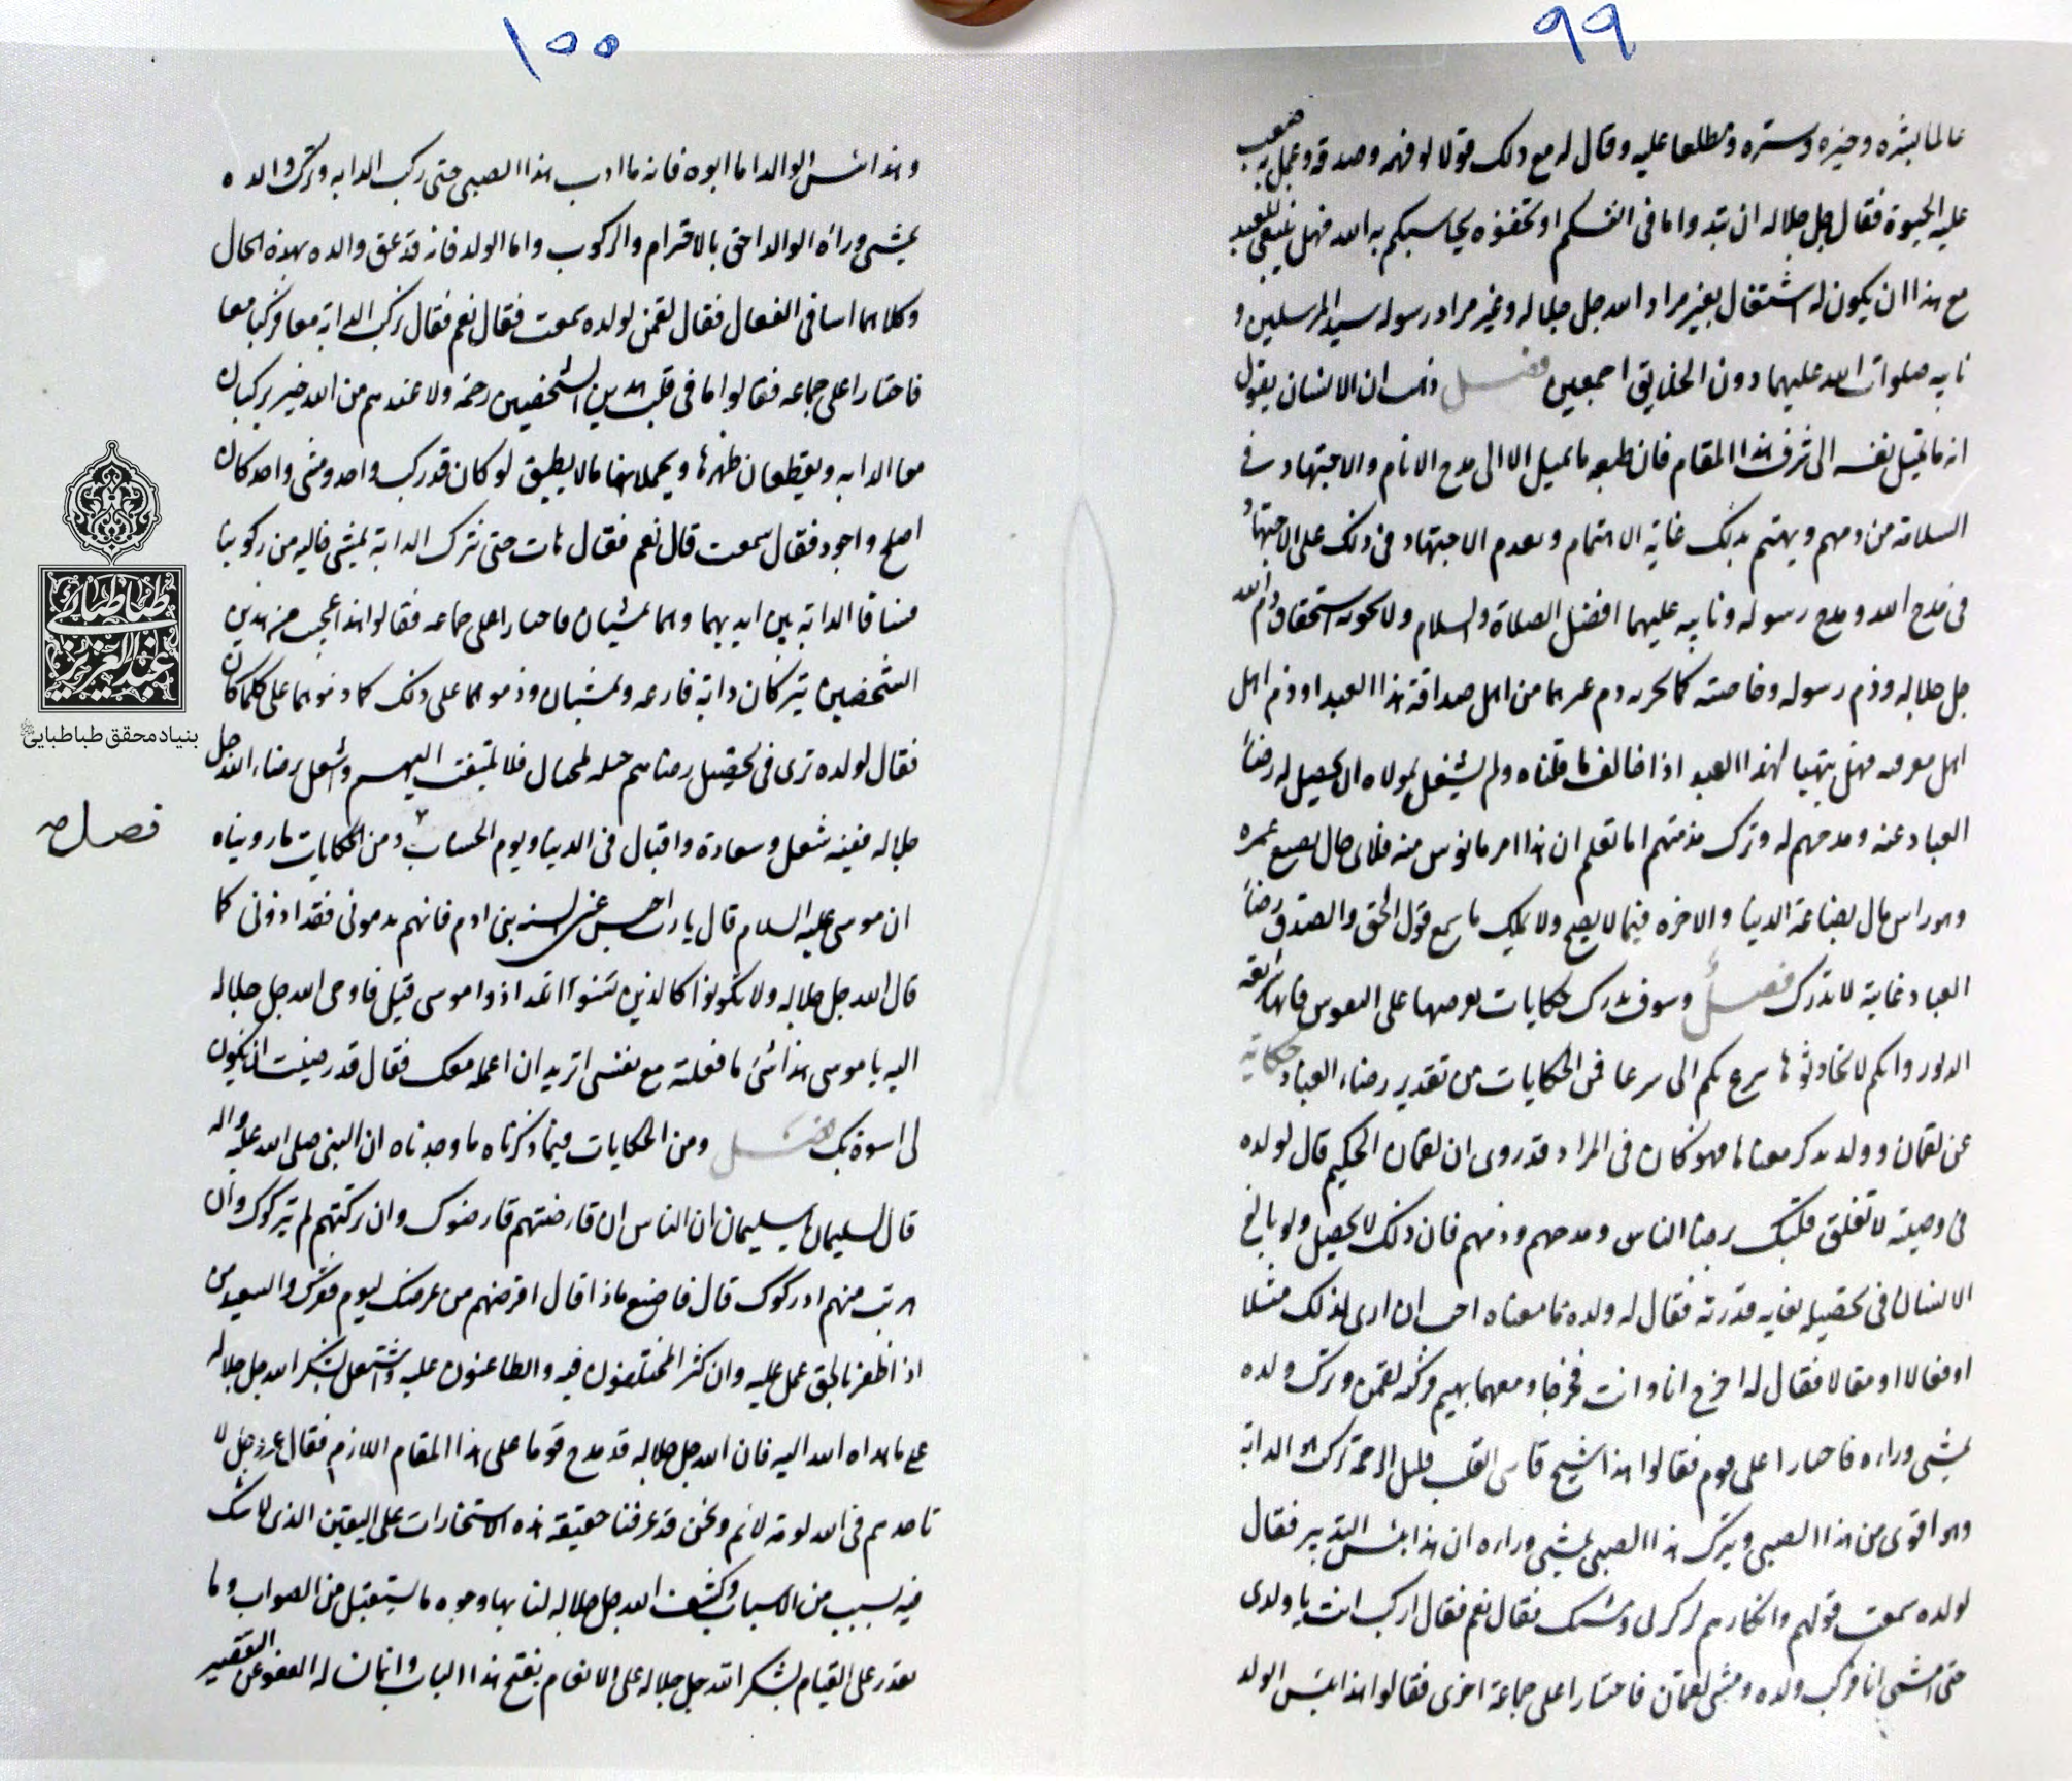 ٩٩
عالما بشره وخيره وستره ومطلعا عليه وقال له مع ذلك قولا لو فهمه وصدقه وعمل به صعب
عليه الحيوة فقال جل جلاله ان تبدوا ما فى انفسكم او تخفوه يحاسبكم به الله فهل ينبغى للعبد
مع هذا ان يكون له اشتغال بغير مراد الله جل جلاله وغير مراد رسوله سيد المرسلين و
نايبه صلوات الله عليهما دون الخلايق اجمعين فصل وهب ان الانسان يقول
انه ما تميل نفسه الى شرف هذا المقام فان طبعه ما يميل الا الى مدح الانام والاجتهاد فى
السلامة من ذمهم ويهتم بذلك غاية الاهتمام ويقدم الاجتهاد فى ذلك على الاجتهاد
فى مدح الله ومدح رسوله ونايبه عليهما افضل الصلاة والسلام ولا يحزنه استحقاق ذم الله
جل جلاله وذم رسوله وخاصته كما يحزنه ذم غيرهما من اهل صداقة هذا العبد او ذم اهل
اهل معرفه فهل يتهيا لهذا العبد اذا خالف ما قلناه ولم يشتغل بمولاه ان يحصل له رضاً
العباد عنه ومدحهم له وترك مذمتهم اما تعلم ان هذا امر مايوس منه فلاى حال يضيع عمره
وهو راس مال بضاعة الدنيا والاخره فيما لا يصح ولا يملك ما سمع قول الحق والصدق رضاً
العباد غاية لا تدرك فصل وسوف نذكر حكايات نعرضها على النفوس فانها شائقه
الدور وانكم لا تحادثوها سرع بكم الى سرعا فمن الحكايات من تقدير رضاء العباد حكاية
عن لقمان وولده نذكر معناها فهو كان فى المراد فقد روى ان لقمان الحكيم قال لولده
فى وصيته لا تعلق قلبك برضا الناس ومدحهم وذمهم فان ذلك لا يحصل ولو بالغ
الانسان فى تحصيله بغايه قدرته فقال له ولده ما معناه احب ان ارى لذلك مثلا
او فعالا او مقالا فقال له اخرج انا وانت فخرجا ومعهما بهيم فركبه لقمن وترك ولده
يمشى وراءه فاجتازا على قوم فقالوا هذا شيخ قاسى القلب قليل الرحمة يركب هو الدابة
وهو اقوى من هذا الصبى ويترك هذا الصبى يمشى وراءه ان هذا بئس التدبير فقال
لولده سمعت قولهم وانكارهم لركوبى ومشيك فقال نعم فقال اركب انت يا ولدى
حتى امشى انا فركب ولده ومشى لقمان فاجتازا على جماعة اخرى فقالوا هذا بئس الولد
١٠٠
وهذا بئس الوالد اما ابوه فانه ما ادب هذا الصبى حتى ركب الدابه وترك والده
يمشى وراه والوالد احق بالاحترام والركوب واما الولد فانه قد عق والده بهذه الحال
وكلاهما اسا فى الفعال فقال لقمن لولده سمعت فقال نعم فقال نركب الدابه معا فركبا معا
فاجتازا على جماعه فقالوا ما فى قلب هذين الشخصين رحمة ولا عندهم من الله خير يركبان
معا الدابه ويقطعان ظهرها ويحملانها ما لا يطيق لو كان قد ركب واحد ومشى واحد كان
اصلح واجود فقال سمعت قال نعم فقال هات حتى نترك الدابة تمشى خاليه من ركوبنا
فساقا الدابة بين ايديهما وهما يمشيان فاجتازا على جماعه فقالوا هذا عجيب من هذين
الشخصين يتركان دابة فارغه ويمشيان وذموهما على ذلك كما ذموهما على كلما كان
فقال لولده ترى فى تحصيل رضاهم حيله لمحتال فلا تلتفت اليهم واشتغل برضاء الله جل
جلاله ففيه شغل وسعادة واقبال فى الدنيا ويوم الحساب ومن الحكايات ما رويناه
فصل
ان موسى عليه السلام قال يا رب احبس عنى السنه بنى ادم فانهم يذمونى فقد اذونى كما
قال الله جل جلاله ولا تكونوا كالذين اذوا موسى قيل فاوحى الله جل جلاله
اليه يا موسى هذا شئ ما فعلته مع نفسى اتريد ان اعمله معك فقال قد رضيت ان يكون
لى اسوة بك فصل ومن الحكايات فيما ذكرناه ما وجدناه ان النبى صلى الله عليه واله
قال لسليمان يا سليمان ان الناس ان قارضتهم قارضوك وان تركتهم لم يتركوك وان
هربت منهم ادركوك قال فاصنع ماذا قال اقرضهم من عرضك ليوم فقرك والسعيد من
اذا ظفر بالحق عمل عليه وان كثر المختلفون فيه والطاعنون عليه واشتغل بشكر الله جل جلاله
على ما هداه الله اليه فان الله جل جلاله قد مدح قوما على هذا المقام اللازم فقال عز وجل لا
تاخذهم فى الله لومة لائم ونحن قد عرفنا حقيقة هذه الاستخارات على اليقين الذى لا شك
فيه بسبب من الاسباب وكشف الله جل جلاله لنا بها وجوه ما يستقبل من الصواب وما
نقدر على القيام بشكر الله جل جلاله على الانعام بفتح هذا الباب وانما نساله العفو عن التقصير
طباطبائى
عبدالعزيز
بنیاد محقق طباطبایی